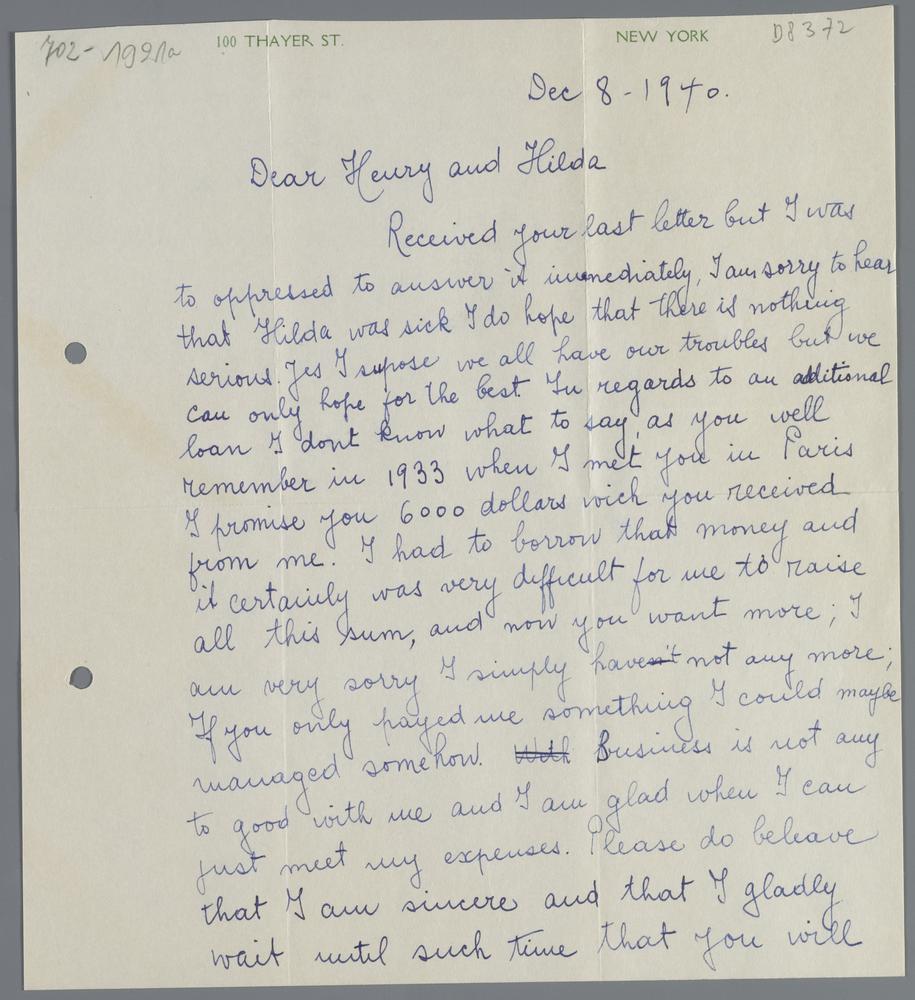 702-1991a 100 THAYER ST. NEW YORK D8372
Dec 8 - 1940.
Dear Henry and Hilda
Received your last letter but I was
to oppressed to answer it immediately, I am sorry to hear
that Hilda was sick I do hope that there is nothing
serious. Yes I supose we all have our troubles but we
can only hope for the best. In regards to an additional
loan I dont know what to say, as you well
remember in 1933 when I met you in Paris
I promise you 6000 dollars wich you received
from me. I had to borrow that money and
it certainly was very difficult for me to raise
all this sum, and now you want more; I
am very sorry I simply haven't not any more;
If you only payed me something I could maybe
managed somehow. With Business is not any
to good with me and I am glad when I can
just meet my expenses. Please do beleave
that I am sincere and that I gladly
wait until such time that you will